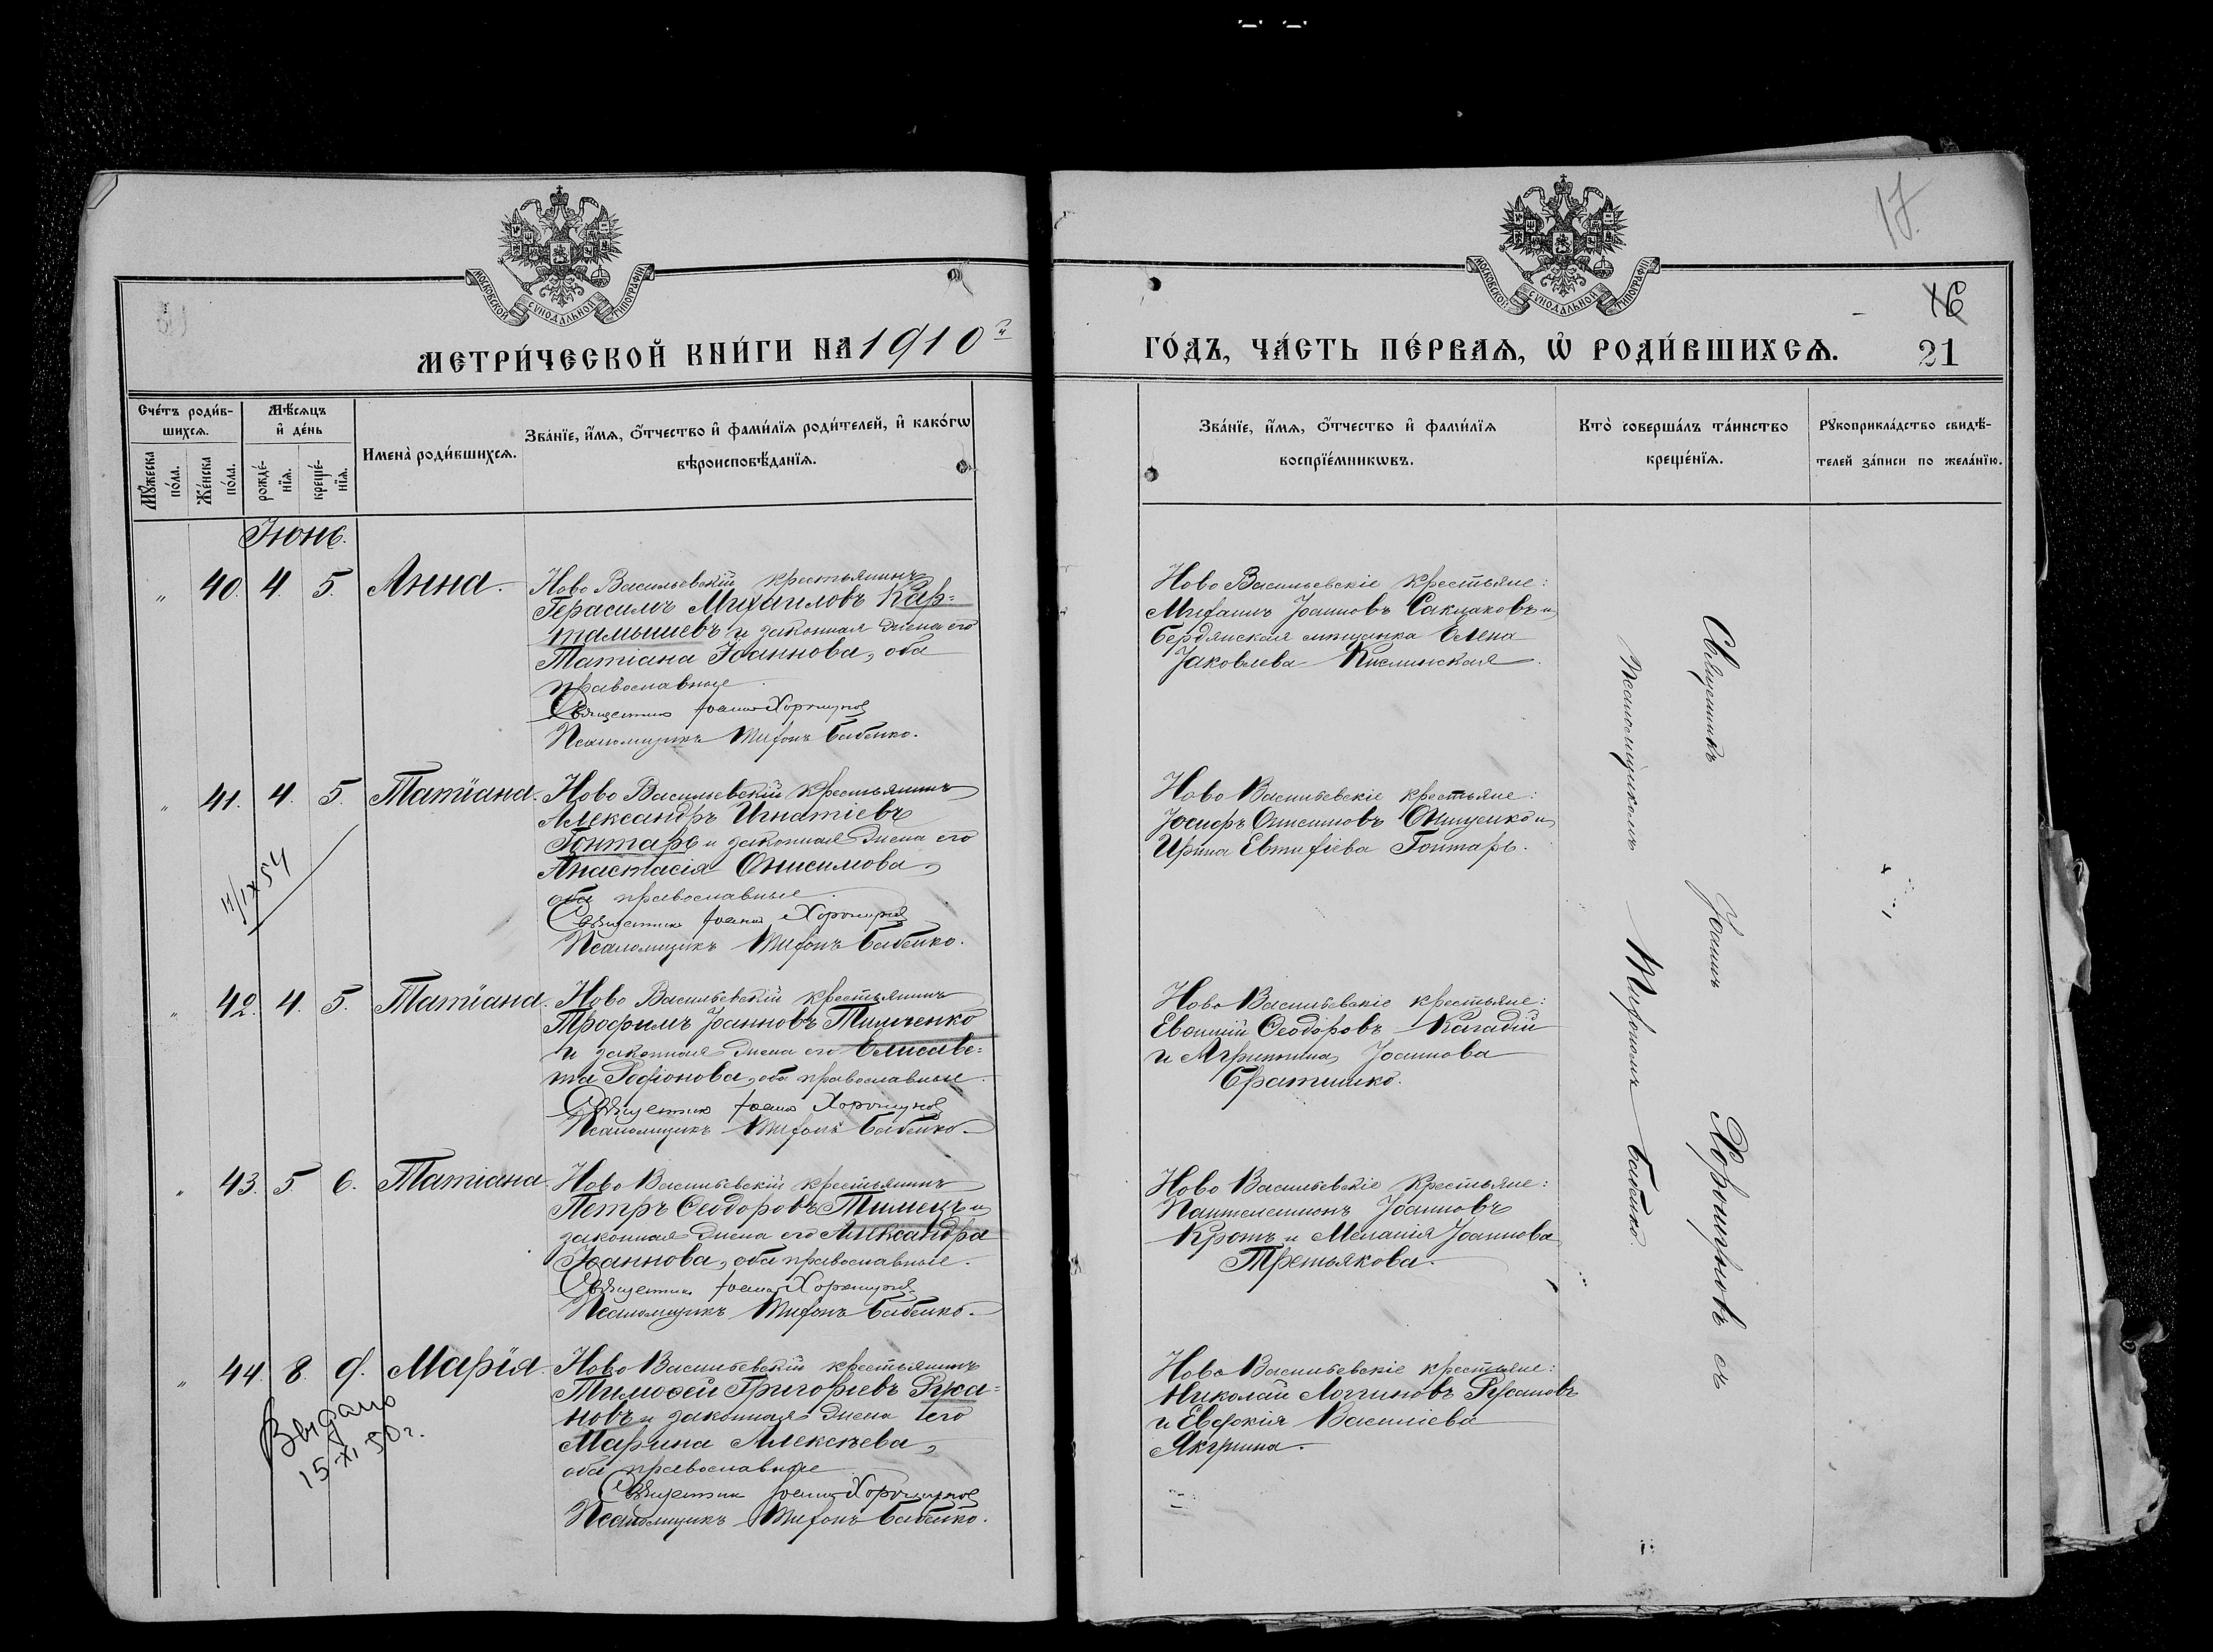 17.
16
21
МОСКОВСКОЙ СѴНОДАЛЬНОЙ ТИПОГРАФІИ
МОСКОВСКОЙ СѴНОДАЛЬНОЙ ТИПОГРАФІИ
МЕТРИ́ЧЕСКОЙ КНИ́ГИ НА 1910й
ГО́ДЪ, ЧА́СТЬ ПЕ́РВАѦ, Ѡ҆ РОДИ́ВШИХСѦ.
Счетъ роди́в-
шихсѧ.
Мѣсѧцъ
и҆ де́нь
Мꙋжеска
по́ла.
Же́нска
по́ла.
рожде́-
нїѧ.
креще́-
нїѧ.
Имена̀ роди́вшихсѧ.
Зва́нїе, и҆́мѧ, ѻ҆́тчество и҆ фами́лїѧ роди́телей, и҆ како́гѡ
вѣроисповѣ́данїѧ.
Зва́нїе, и҆́мѧ, ѻ҆́тчество и҆ фами́лїѧ
воспрїе́мникѡвъ.
Кто̀ соверша́лъ та́инство
креще́нїѧ.
Рꙋкоприкла́дство свидѣ́-
телей за́писи по жела́нїю.
Іюнь.
" 40. 4. 5. Анна.
Ново Васильевскій крестьянинъ
Герасимъ Михаиловъ Кар=
тамышевъ и законная жена его
Татіана Іоаннова, оба
православные
Священник Іоанн Хорошунов
Псаломщикъ Тифонъ Бабенко.
Ново Васильевскіе крестьяне:
Михаилъ Іоанновъ Саклаковъ и
бердянская мѣщанка Елена
Іаковлева Кислинская.
" 41. 4. 5. Татіана.
Ново Васильевскій крестьянинъ
Александръ Игнатіевъ
Гонтарь и законная жена его
Анастасія Онисимова,
оба православные
Священник Іоанн Хорошунов
Псаломщикъ Тифонъ Бабенко.
11/IX 54
Ново Васильевскіе крестьяне:
Іосифъ Онисимовъ Онищенко и
Ирина Евтихіева Гонтарь.
" 42. 4. 5. Татіана.
Ново Васильевскій крестьянинъ
Трофимъ Іоанновъ Тимченко
и законная жена его Елисаве=
та Родіонова, оба православные.
Священник Іоанн Хорошунов
Псаломщикъ Тифонъ Бабенко.
Ново Васильевскіе крестьяне:
Евфимій Ѳеодоровъ Кагадій
и Агрипина Іоаннова
Братишко.
" 43. 5. 6. Татіана.
Ново Васильевскій крестьянинъ
Петръ Ѳеодоровъ Тимецъ и
законная жена его Александра
Іоаннова, оба православные.
Священник Іоанн Хорошунов
Псаломщикъ Тифонъ Бабенко.
Ново Васильевскіе крестьяне:
Пантелеимонъ Іоанновъ
Кротъ и Меланія Іоаннова
Третьякова.
" 44. 8. 9. Марія.
Ново Васильевскій крестьянинъ
Тимоѳей Григорьевъ Руса=
новъ и законная жена его
Марина Алексѣева,
оба православные
Священник Іоанн Хорошунов
Псаломщикъ Тифонъ Бабенко.
Выдано
15 XI 50 г.
Ново Васильевскіе крестьяне:
Николай Логгиновъ Русановъ
и Евдокія Василіева
Якунина.
Священникъ Іоаннъ Хорошуновъ съ
Псаломщикомъ Тифономъ Бабенко.